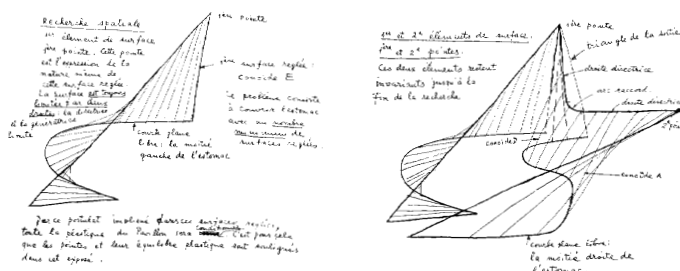 Recherche spatiale
1er élément de surface
1ère pointe. Cette pointe
est l'expression de la
nature même de
cette surface réglée.
La surface est toujours
limitée par deux
droites : la directrice
et la génératrice
limite
1ère pointe
1ère surface réglée :
conoïde E
le problème consiste
à couvrir l'estomac
avec un nombre
minimum de
surfaces réglées.
courbe plane
libre : la moitié
gauche de l'estomac
postulat implicite surfaces réglées,
toute la plastique du Pavillon sera C'est pour cela
que les pointes et leur équilibre plastique sont soulignés
dans cet exposé.
1er et 2e éléments de surface.
1ère et 2e pointes.
Ces deux éléments restent
invariants jusqu'à la
fin de la recherche
1ère pointe
triangle de la sortie
droite directrice
arc raccord.
droite directrice
conoïde
conoïde A
courbe plane libre :
la moitié droite de
l'estomac